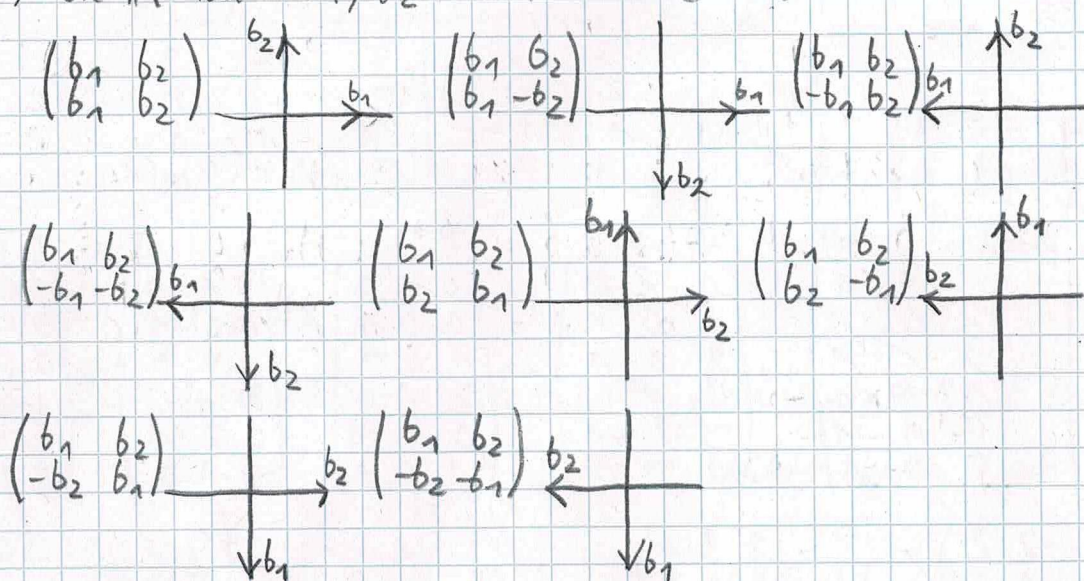 b₂
(b₁ b₂
b₁ b₂)
b₁
(b₁ b₂
b₁ -b₂)
b₁
b₂
(b₁ b₂
-b₁ b₂)
b₁
b₂
(b₁ b₂
-b₁ -b₂)
b₁
b₂
(b₁ b₂
b₂ b₁)
b₁
b₂
(b₁ b₂
b₂ -b₁)
b₂
b₁
(b₁ b₂
-b₂ b₁)
b₂
b₁
(b₁ b₂
-b₂ -b₁)
b₂
b₁